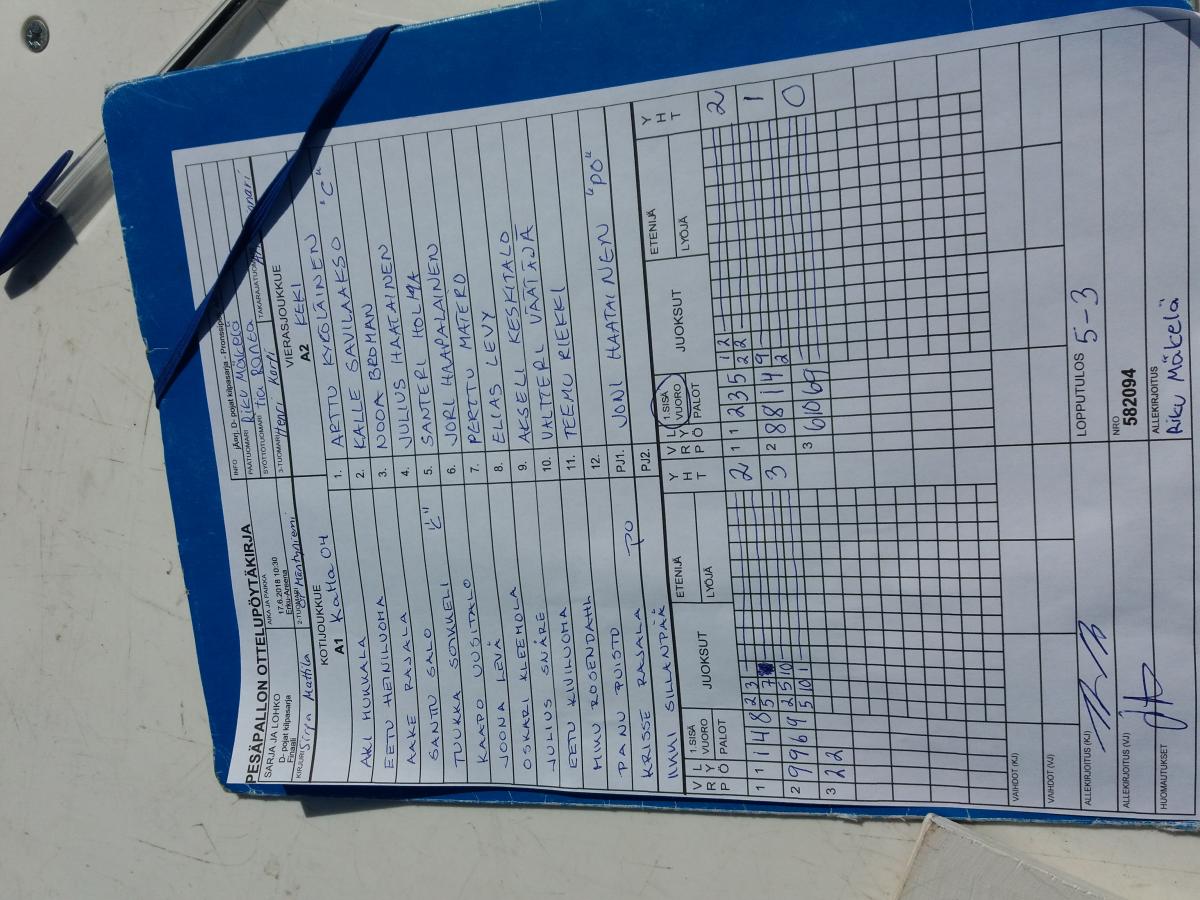 PESÄPALLON OTTELUPÖYTÄKIRJA
SARJA JA LOHKO
D- pojat kilpasarja
Finaali
AIKA JA PAIKKA
17.6.2018 10:30
Erku-Areena
INFO
PÄÄTUOMARI Riku Mäkelä
SYÖTTÖTUOMARI Tia Ranta TAKARAJATUOMARI
KIRJURI Sirpa Mattila
2-TUOMARI
3-TUOMARI Henri Korpi
KOTIJOUKKUE
A1 KaMa 04
VIERASJOUKKUE
A2 KEKI
AKI HUKKALA 1. ARTTU KYRÖLÄINEN "C"
EETU HEINILUOMA 2. KALLE SAVILAAKSO
AAKE RAJALA 3. NOOA BROMAN
SANTTU SALO "C" 4. JULIUS HAATAINEN
TUUKKA SOIKKELI 5. SANTERI HOLMA
KAAPO UUSITALO 6. JORI HAAPALAINEN
JOONA LEVÄ 7. PERTTU MATERO
OSKARI KLEEMOLA 8. ELIAS LEVY
JULIUS SNÅRE 9. AKSELI KESKITALO
EETU KIVILUOMA 10. VALTTERI VÄÄTÄJÄ
MIKU ROSENDAHL 11. TEEMU RIEKKI
PANU PUISTO 12.
KRISSE RAJALA PO PJ1. JONI HAATAINEN "PO"
ILKKI SILLANPÄÄ PJ2.
V R P L Y Ö 1.SISÄ VUORO PALOT JUOKSUT ETENIJÄ LYÖJÄ Y H T
V R P L Y Ö 1.SISÄ VUORO PALOT JUOKSUT ETENIJÄ LYÖJÄ Y H T
1 1 1 4 8 2 3 2
5 7
2 9 9 6 9 2 5 10 3
5 10 1
3 2 2
1 1 2 3 5 1 2 2
2 2
2 8 8 1 4 9 1
2
3 6 10 6 9 0
VAIHDOT (KJ)
VAIHDOT (VJ)
ALLEKIRJOITUS (KJ)
LOPPUTULOS 5-3
ALLEKIRJOITUS (VJ)
NRO
582094
HUOMAUTUKSET
ALLEKIRJOITUS
Riku Mäkelä